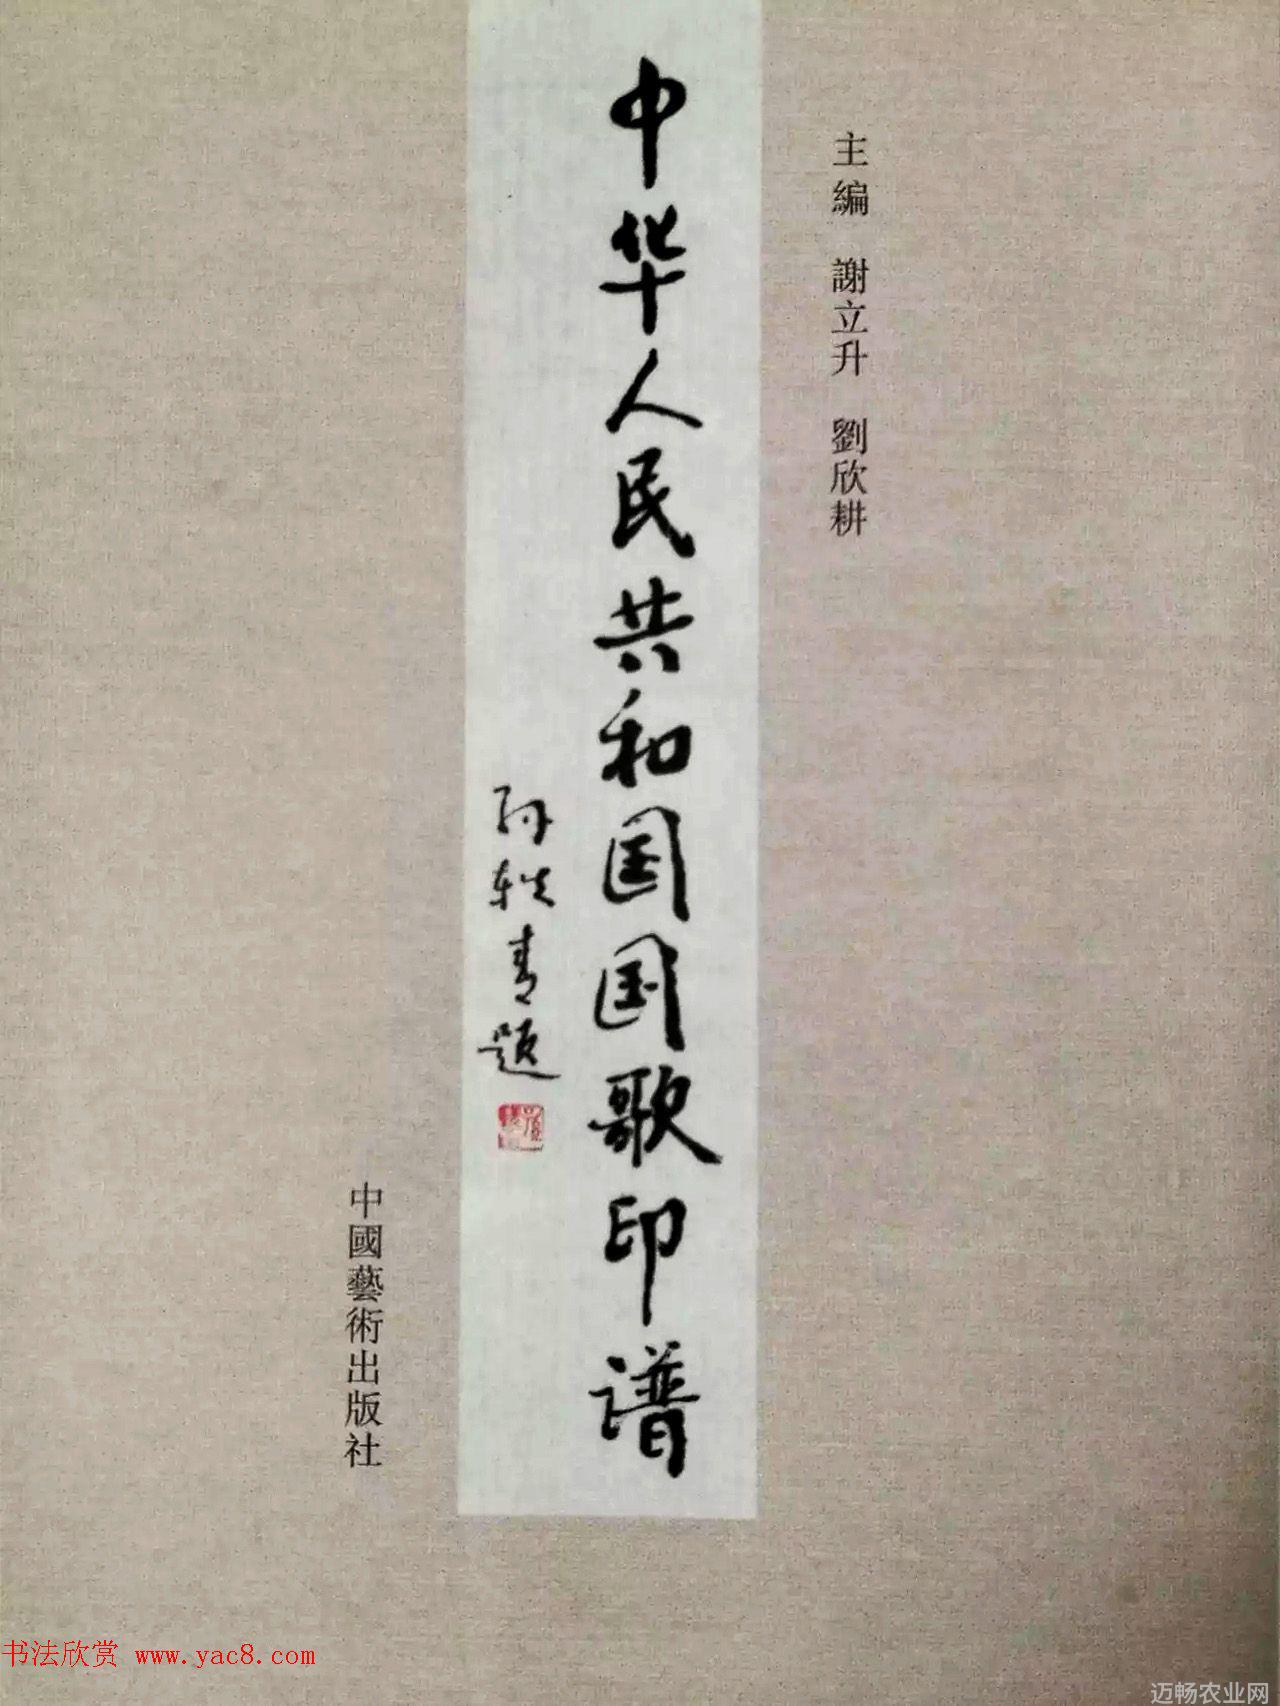 主編 謝立升 劉欣耕
中华人民共和国国歌印谱
孙轶青题
中國藝術出版社
书法欣赏 www.yac8.com
迈畅农业网